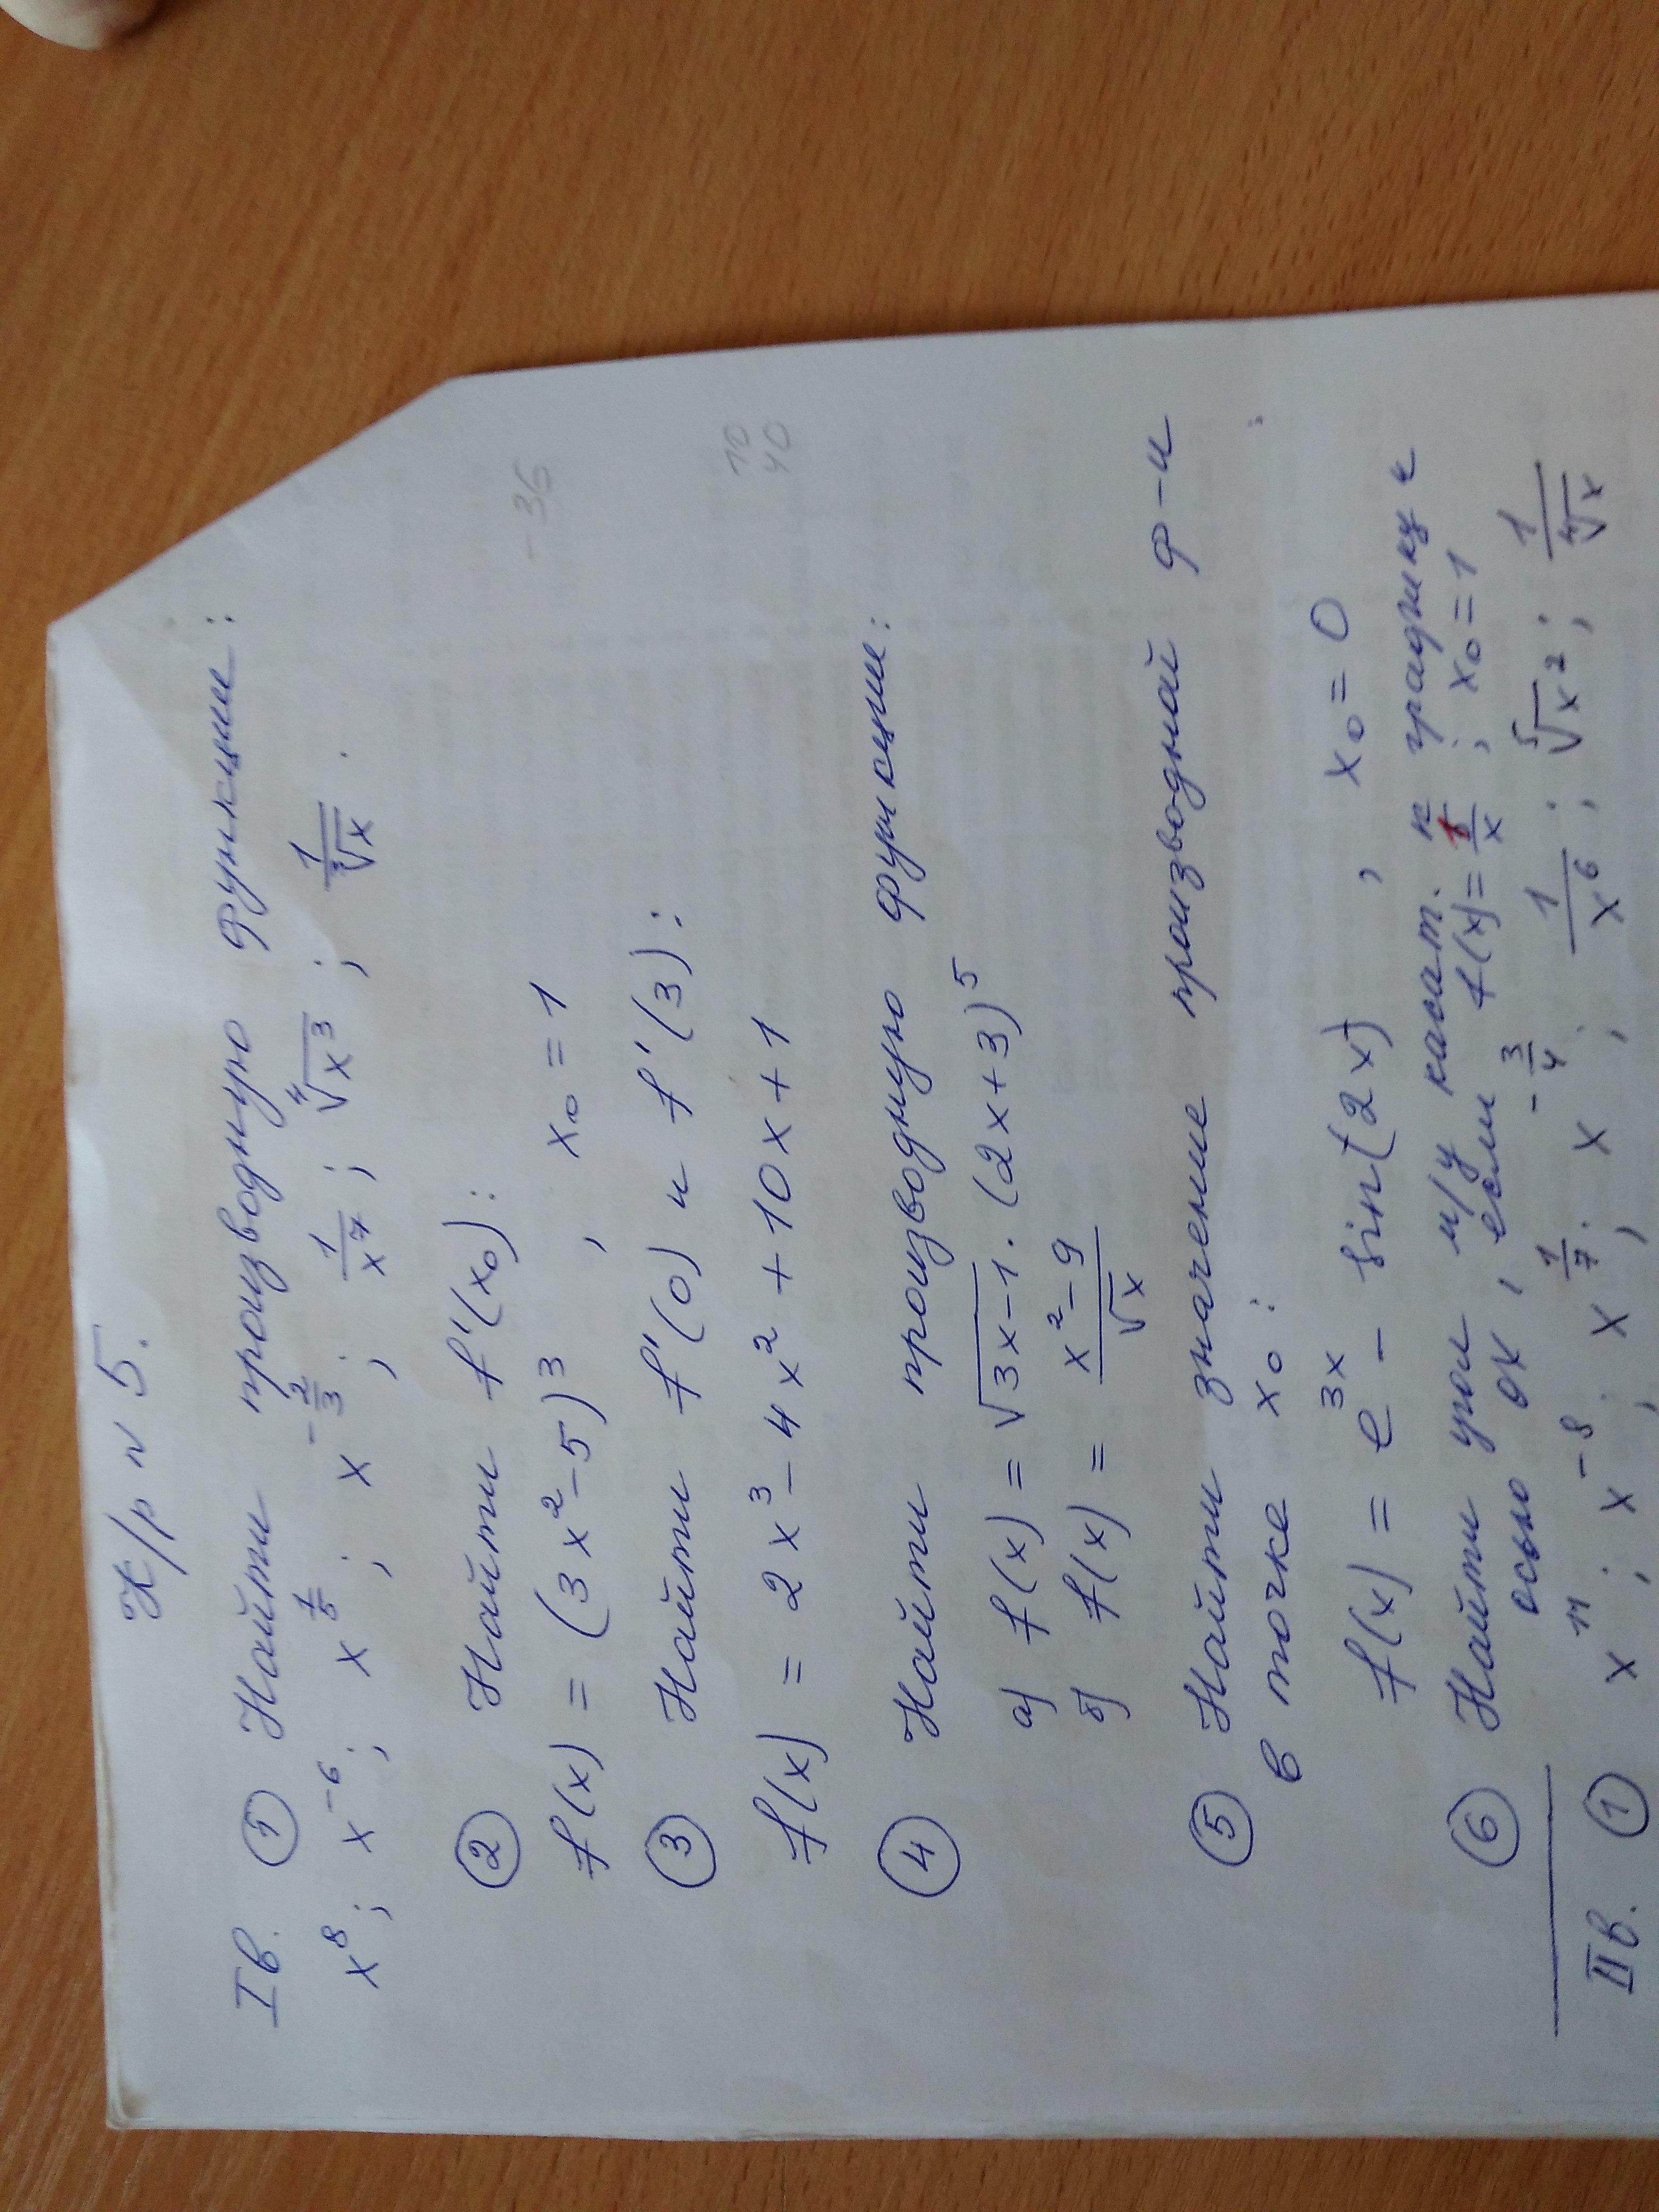 К/р № 5.
I в. ① Найти производную функции:
x⁸; x⁻⁶; x^(1/5); x^(-2/3); 1/x⁷; ⁴√x³; 1/³√x.
② Найти f'(x₀):
f(x) = (3x²-5)³, x₀ = 1
-36
③ Найти f'(0) и f'(3):
f(x) = 2x³-4x²+10x+1
10
40
④ Найти производную функции:
а) f(x) = √(3x-1) · (2x+3)⁵
б) f(x) = (x²-9)/√x
⑤ Найти значение производной ф-и
в точке x₀:
f(x) = e^(3x) - sin(2x), x₀ = 0
⑥ Найти угол м/у касат. к графику и
осью ОХ, если f(x) = 1/x; x₀ = 1
II в. ① x¹¹; x⁻⁸; x^(1/7); x^(-3/4); 1/x⁶; ⁵√x²; 1/⁴√x